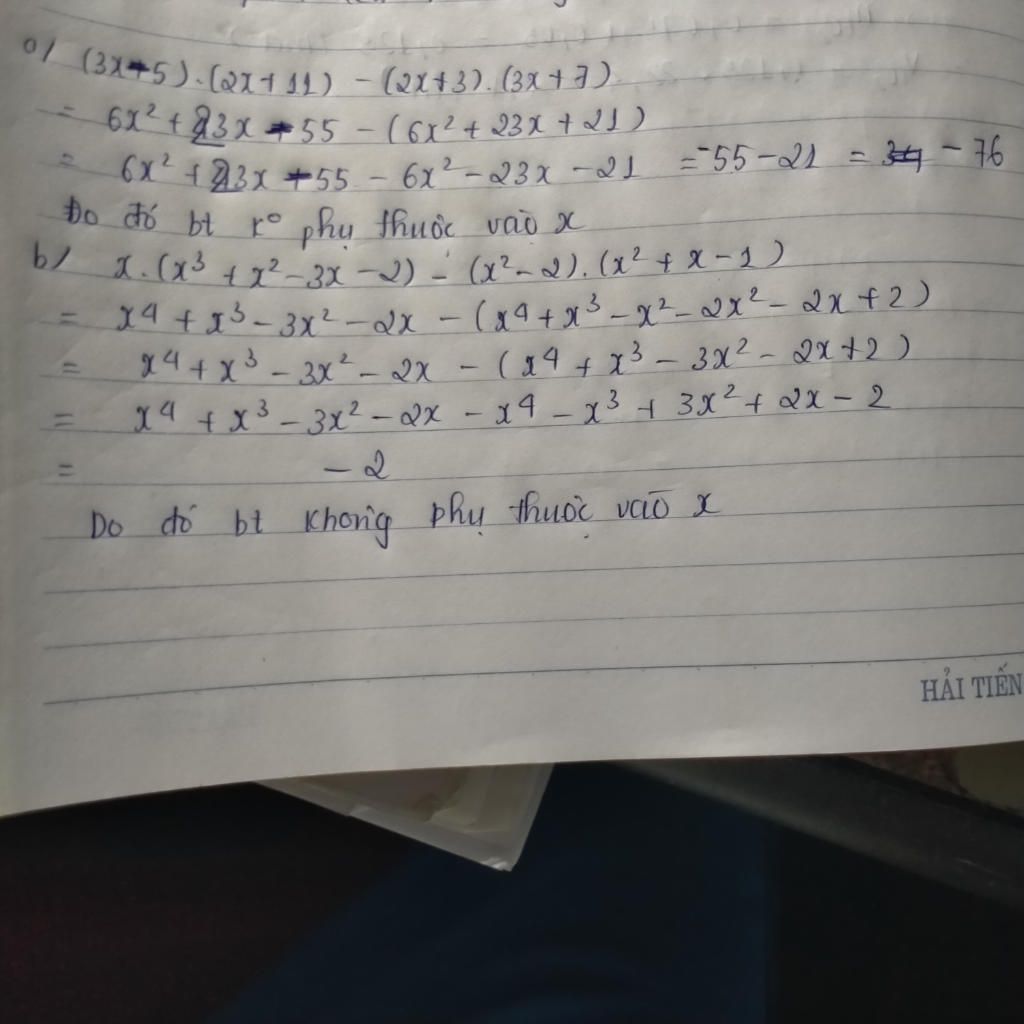 a/ (3x-5).(2x+11) - (2x+3).(3x+7)
= 6x² + 23x - 55 - (6x² + 23x + 21)
= 6x² + 23x - 55 - 6x² - 23x - 21 = -55 - 21 = - 76
Do đó bt k° phụ thuộc vào x
b/ x.(x³ + x² - 3x - 2) - (x² - 2).(x² + x - 1)
= x⁴ + x³ - 3x² - 2x - (x⁴ + x³ - x² - 2x² - 2x + 2)
= x⁴ + x³ - 3x² - 2x - (x⁴ + x³ - 3x² - 2x + 2)
= x⁴ + x³ - 3x² - 2x - x⁴ - x³ + 3x² + 2x - 2
= - 2
Do đó bt không phụ thuộc vào x
HẢI TIẾN